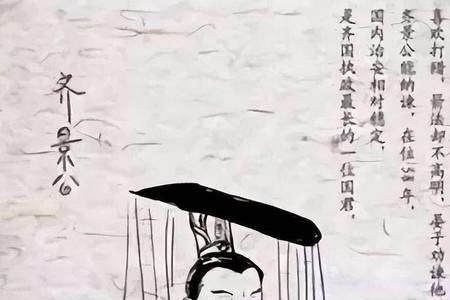 喜欢打猎，箭法却不高明，晏子劝谏他
齐景公能纳谏，在位58年，
国内治安相对稳定，
是齐国执政最长的一位国君，
齐景公